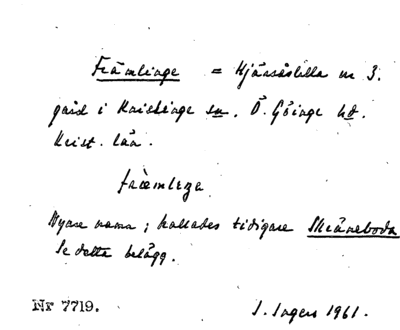 Främlinge = Hjärsåslilla nr 3.
gård i Knislinge sn. Ö. Göinge hd.
Krist. län.
främlega
Nyare namn; kallades tidigare Skräneboda
Se detta belägg.
Nr 7719. I. Ingers 1961.